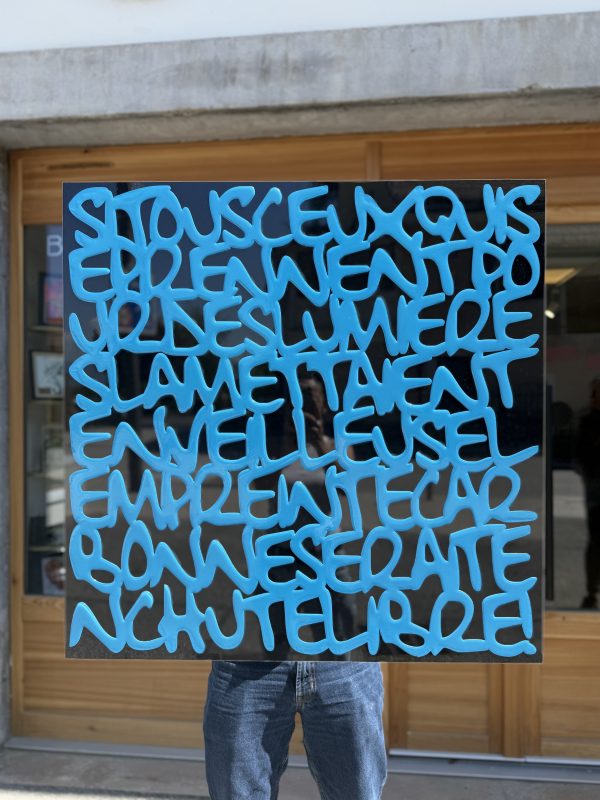 SITOUSCEUXQUIS
EPRENNENTPO
URDESLUMIERE
SLAMETTAIENT
ENVEILLEUSEL
EMPREINTECAR
BONNESERAITE
NCHUTELIBRE!